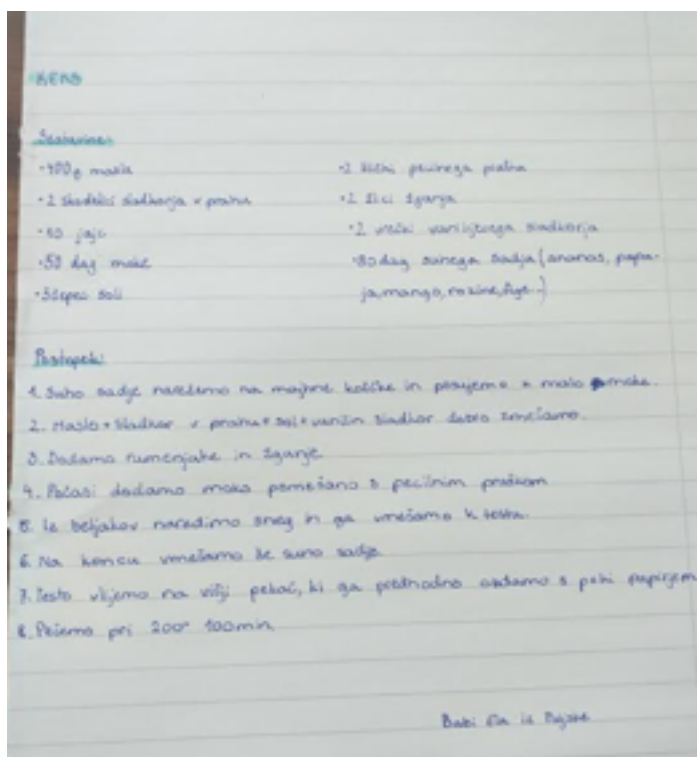 KEKS
Sestavine:
·400g masla
·2 žlički pecivnega praška
·2 skodelici sladkorja v prahu
·2 žlici žganja
·10 jajc
·2 vrečki vanilijevega sladkorja
·50 dag moke
·80dag suhega sadja (ananas, papa-
·Ščepec soli
ja, mango, rozine, fige...)
Postopek:
1. Suho sadje narežemo na majhne koščke in posujemo z malo moke.
2. Maslo + sladkor v prahu + sol + vanilin sladkor dobro zmešamo.
3. Dodamo rumenjake in žganje
4. Počasi dodamo moko pomešano s pecilnim praškom
5. Iz beljakov naredimo sneg in ga vmešamo k testu.
6. Na koncu vmešamo še suho sadje.
7. Testo vlijemo na višji pekač, ki ga predhodno obdamo s peki papirjem
8. Pečemo pri 200° 100min.
Babi iz